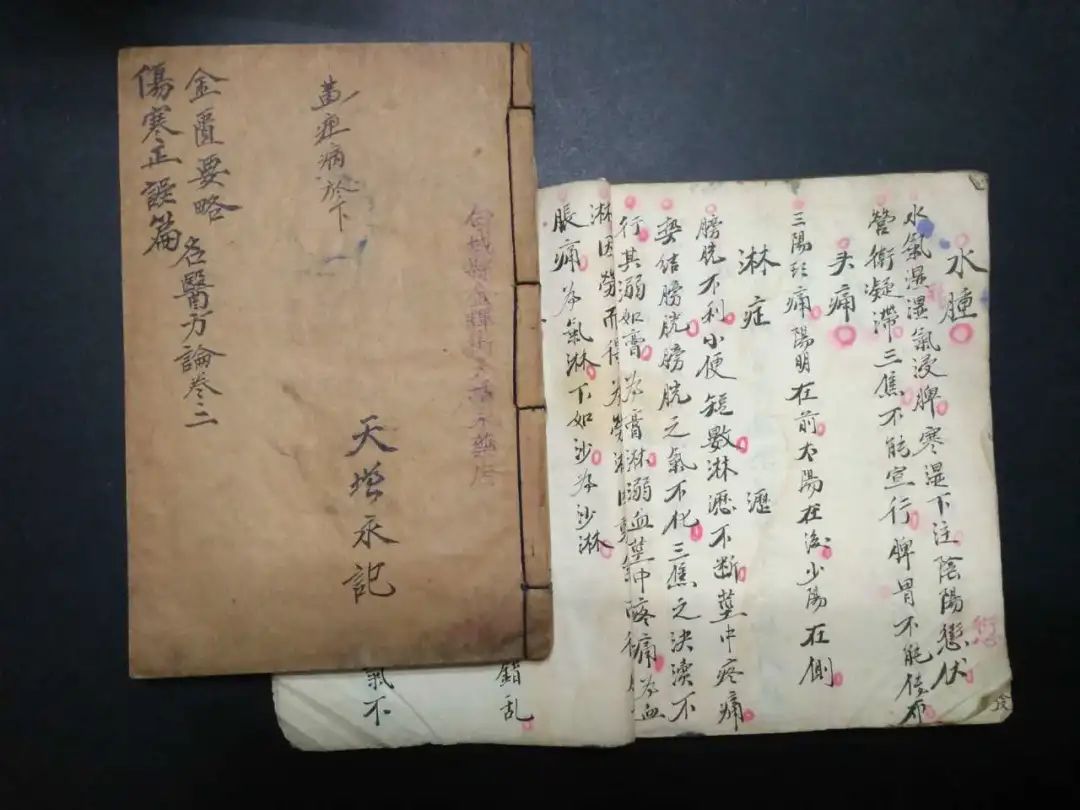 黃疸病於下
天增永記
金匱要略
名醫方論卷二
傷寒正誤篇
水腫
水氣濕濕氣浸脾寒濕下注陰陽愆伏
營衛凝滯三焦不能宣行脾胃不能傳布
头痛
三陽頭痛陽明在前太陽在後少陽在側
淋症 瀝
膀胱不利小便短數淋瀝不断莖中疼痛
結膀胱膀胱之氣不化三焦之決瀆不
行其溺如膏為膏淋溺血莖中疼痛為血
淋因勞而得為勞淋
脹痛為氣淋下如沙為沙淋
錯乱
氣不